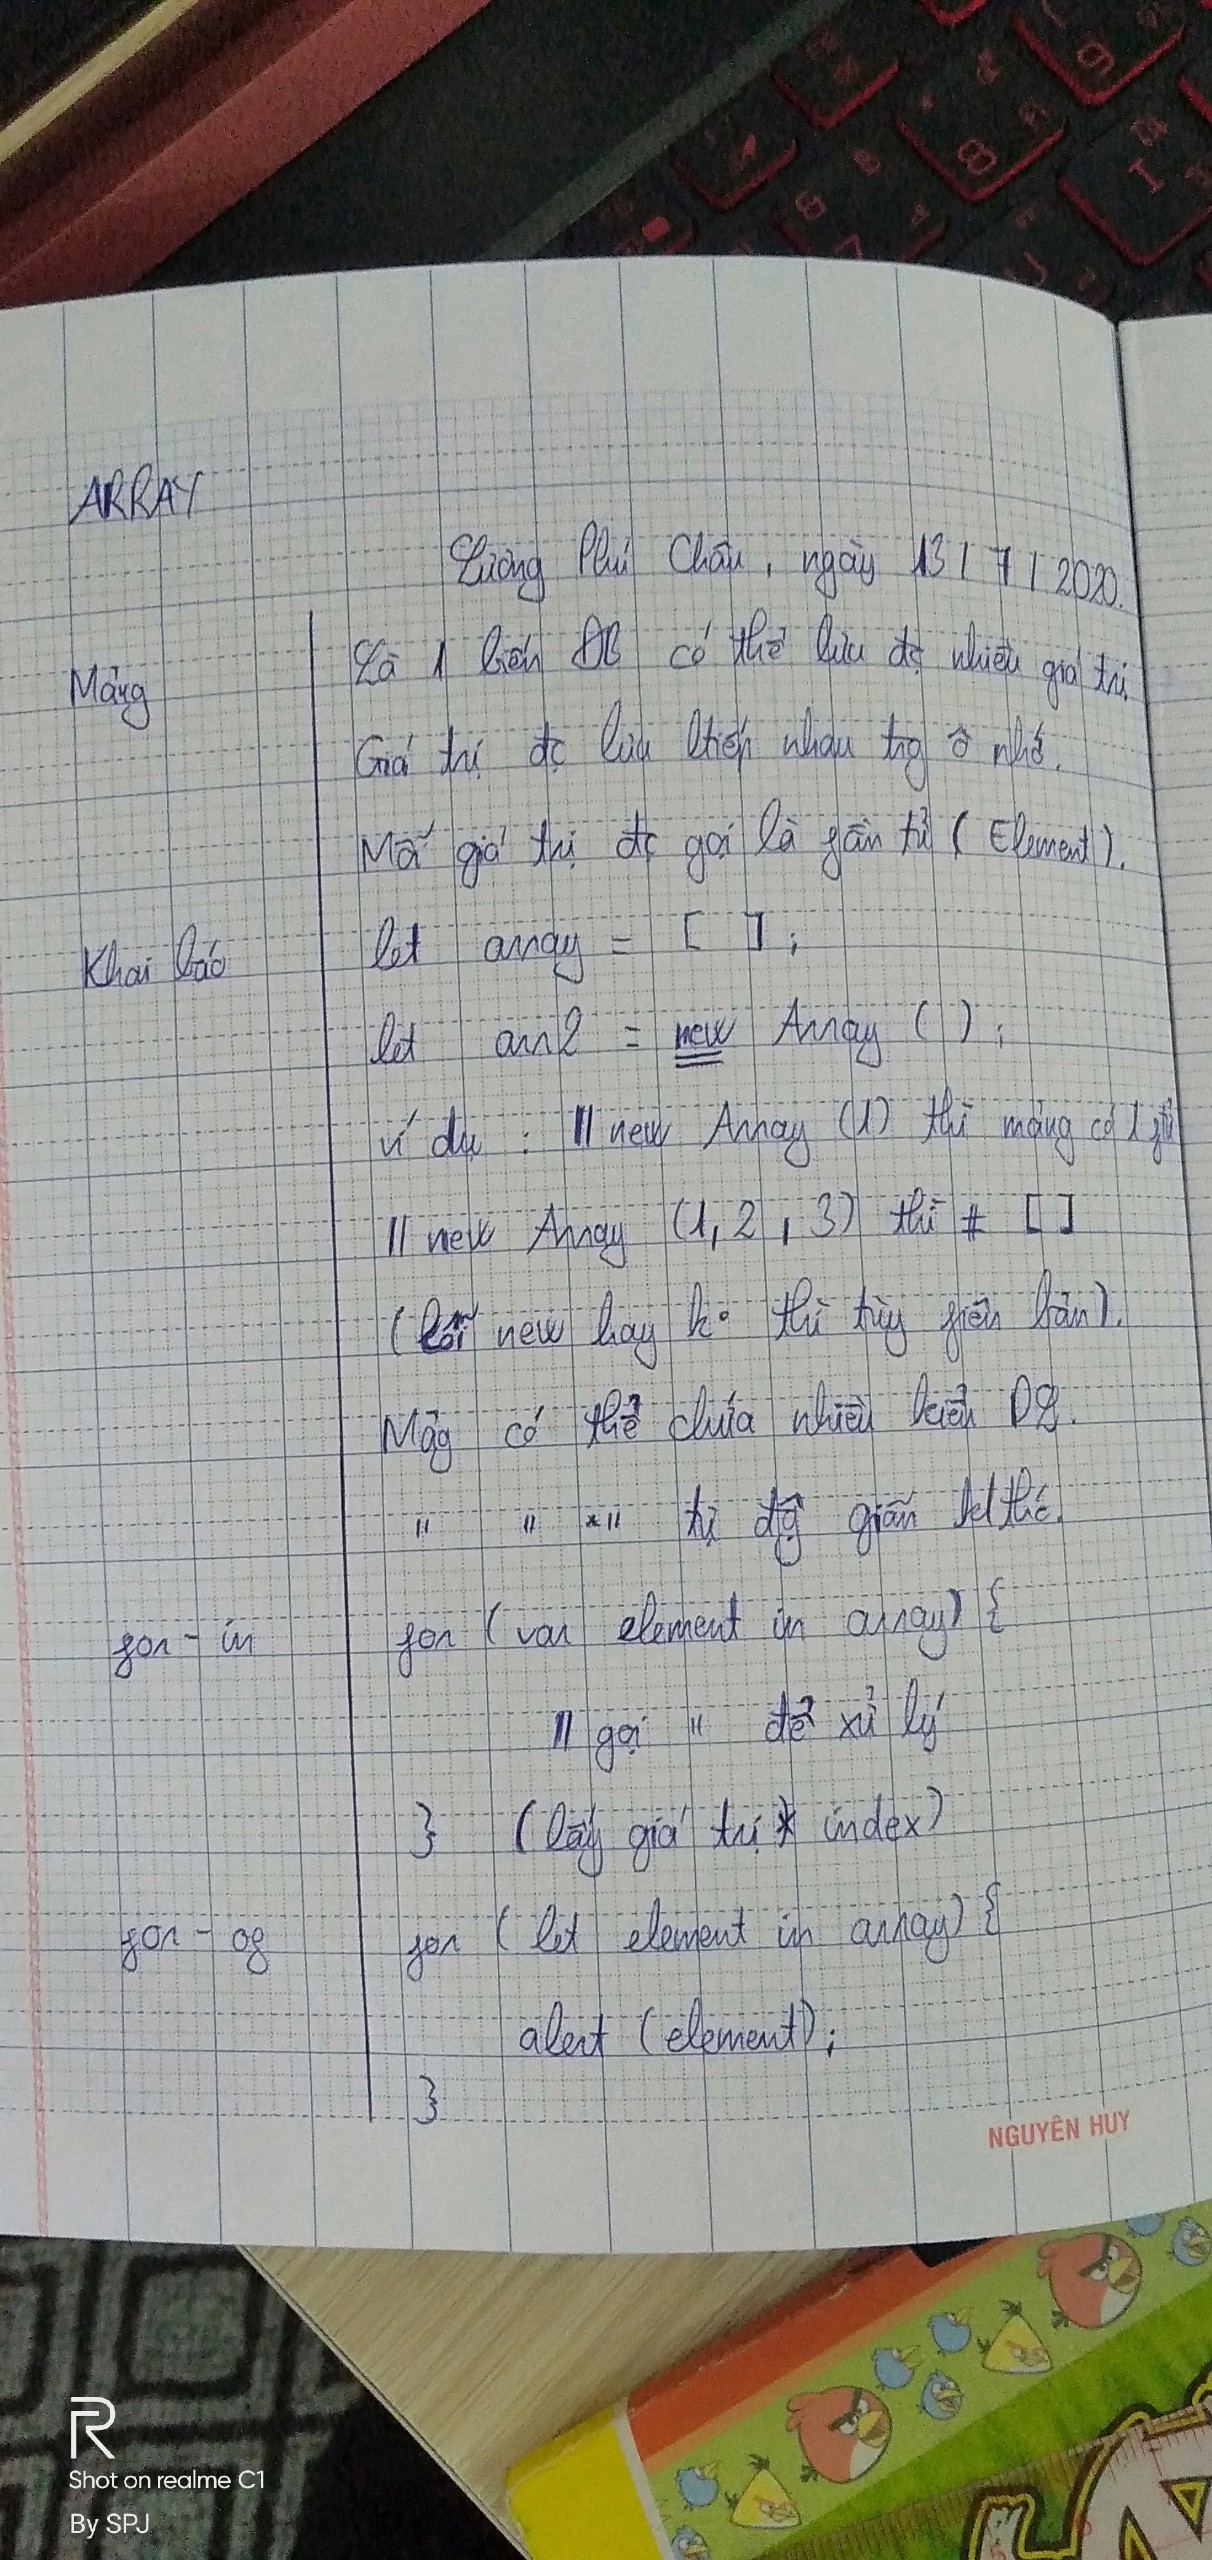 ARRAY
Lương Phú Châu, ngày 13/7/2020.
Mảng
Là 1 biến ĐB có thể lưu đc nhiều giá trị
Giá trị đc lưu ltiếp nhau trg ô nhớ.
Mỗ giá trị đc gọi là fần tử (Element).
Khai báo
let array = [ ];
let arr2 = new Array ( );
Ví dụ : // new Array (1) thì mảng có 1 ftử
// new Array (1, 2, 3) thì ≠ []
(Có new hay ko thì tùy fiên bản).
Mảg có thể chứa nhiều kiểu DL.
" " " tự độg giãn kthc.
for - in
for (var element in array) {
// gọi " để xử lý
} (lấy giá trị * index)
for - of
for (let element in array) {
alert (element);
}
NGUYÊN HUY
R
Shot on realme C1
By SPJ